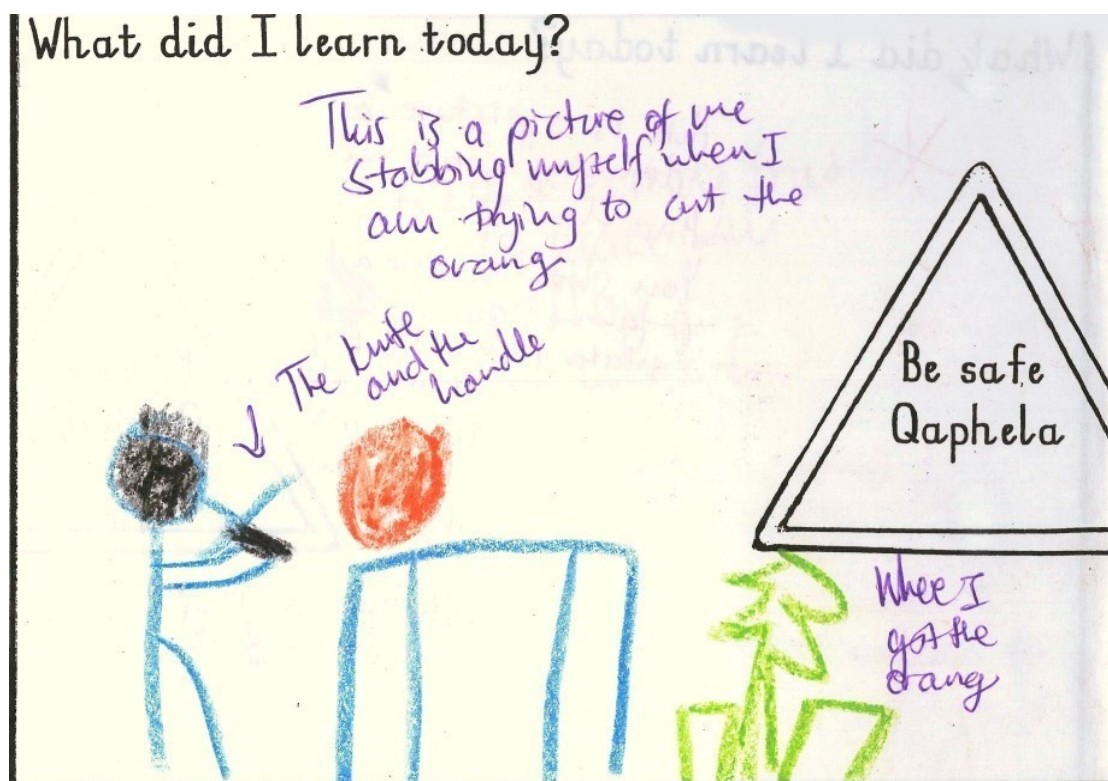 What did I learn today?
This is a picture of me
stabbing myself when I
am trying to cut the
orang
The knife
and the
handle
Be safe
Qaphela
Where I
got the
orang